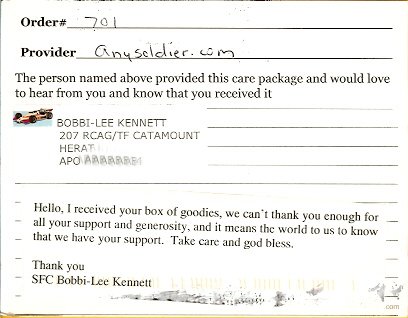 Order# 701
Provider anysoldier.com
The person named above provided this care package and would love
to hear from you and know that you received it
BOBBI-LEE KENNETT
207 RCAG/TF CATAMOUNT
HERAT
APO
Hello, I received your box of goodies, we can't thank you enough for
all your support and generosity, and it means the world to us to know
that we have your support. Take care and god bless.
Thank you
SFC Bobbi-Lee Kennett
.com